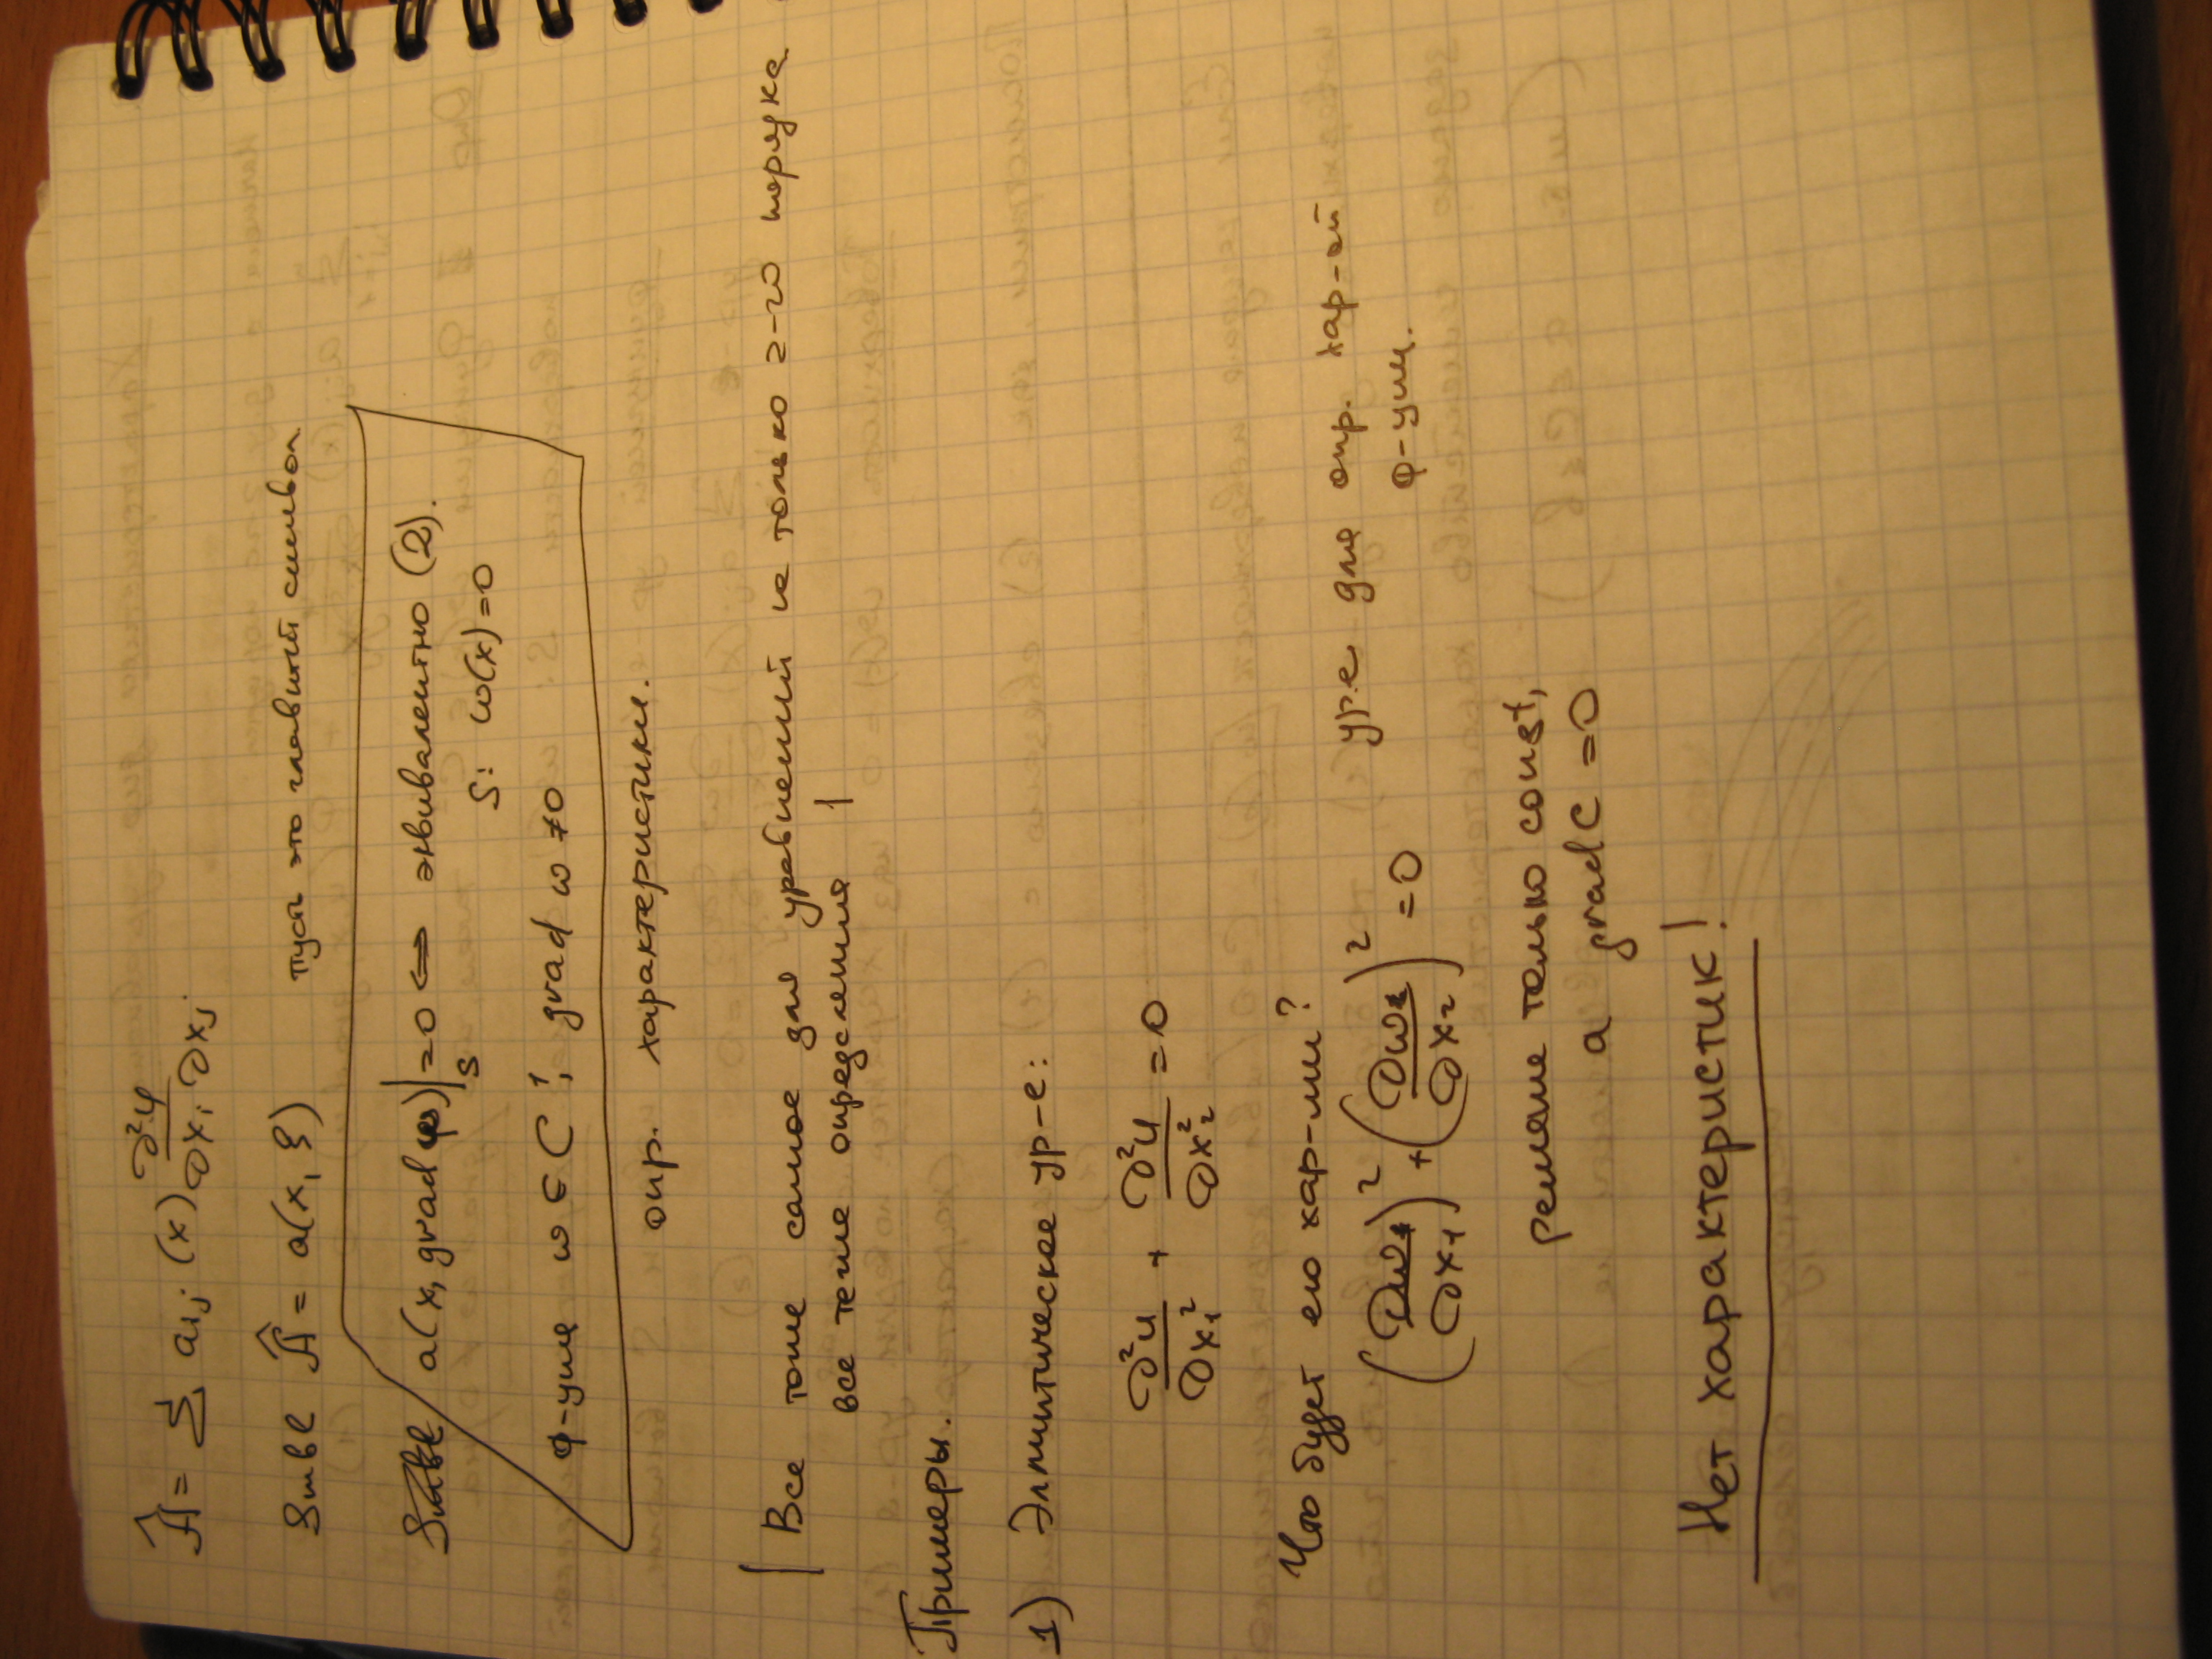 Â = Σ aᵢⱼ(x) ∂²φ/∂xᵢ∂xⱼ
Smbl Â = a(x, ξ) пусть это главный символ
a(x, grad ω)|_S = 0 ⇔ эквивалентно (2).
S: ω(x)=0
Ф-ция ω ∈ C¹, grad ω ≠ 0
опр. характеристики.
Все тоже самое для уравнений не только 2-го порядка
все те же определения
Примеры.
1) Эллиптическое ур-е:
∂²u/∂x₁² + ∂²u/∂x₂² = 0
Что будет его хар-ми?
(∂ω/∂x₁)² + (∂ω/∂x₂)² = 0 ур-е для опр. хар-ой
ф-ции.
решение только const,
а grad C = 0
Нет характеристик!